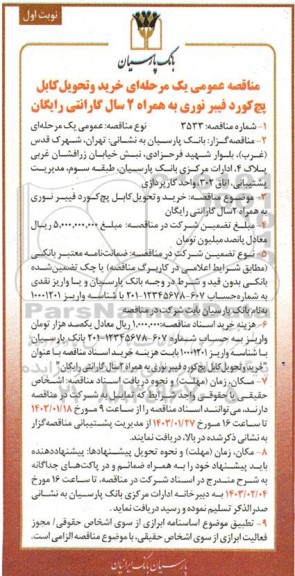 نوبت اول
بانک پارسیان
مناقصه عمومی یک مرحله‌ای خرید وتحویل کابل
پچ‌کورد فیبر نوری به همراه ۲ سال گارانتی رایگان
۱- شماره مناقصه: ۳۵۳۳ نوع مناقصه: عمومی یک مرحله‌ای
۲- مناقصه‌گزار: بانک پارسیان به نشانی: تهران، شهرک قدس
(غرب)، بلوار شهید فرحزادی، نبش خیابان زرافشان غربی
پلاک ۴، ادارات مرکزی بانک پارسیان، طبقه سوم، مدیریت
پشتیبانی، اتاق ۳۰۲، واحد کارپردازی
۳- موضوع مناقصه: خرید و تحویل کابل پچ‌کورد فیبر نوری
به همراه ۲سال گارانتی رایگان
۴- مبلغ تضمین شرکت در مناقصه: مبلغ ۵,۰۰۰,۰۰۰,۰۰۰ ریال
معادل پانصد میلیون تومان
۵- نوع تضمین شرکت در مناقصه: ضمانت‌نامه معتبر بانکی
(مطابق شرایط اعلامی در کاربرگ مناقصه) یا چک تضمین‌شده
بانکی بدون قید و شرط در وجه بانک پارسیان و یا واریز نقدی
به شماره‌حساب ۶۰۷-۱۲۳۴۵۶۷۸-۲۰۱ با شناسه واریز ۱۰۰۰۱۲۰۱
به‌نام بانک پارسیان بابت شرکت در مناقصه
۶- هزینه خرید اسناد مناقصه: ۱,۰۰۰,۰۰۰ ریال معادل یکصد هزار تومان
واریز به حساب شماره ۶۰۷-۱۲۳۴۵۶۷۸-۲۰۱ بانک پارسیان
با شناسه واریز ۱۰۰۰۱۲۰۱ بابت هزینه خرید اسناد مناقصه با عنوان
"خرید و تحویل کابل پچ کورد فیبر نوری به همراه ۲سال گارانتی رایگان"
۷- مکان، زمان (مهلت) و نحوه دریافت اسناد مناقصه: اشخاص
حقیقی یا حقوقی واجد شرایط که تمایل به شرکت در مناقصه
دارند، می‌توانند اسناد مناقصه را از ساعت ۹ مورخ ۱۴۰۳/۰۱/۱۸
تا ساعت ۱۶ مورخ ۱۴۰۳/۰۱/۲۷ از مدیریت پشتیبانی مناقصه‌گزار
به نشانی ذکرشده در بالا، دریافت نمایند.
۸- مکان، زمان (مهلت) و نحوه تحویل پیشنهادها: پیشنهاددهنده
باید پیشنهاد خود را به همراه ضمائم و در پاکت‌های جداگانه
به شرح مندرج در اسناد شرکت در مناقصه، تا ساعت ۱۶ مورخ
۱۴۰۳/۰۲/۰۴ به دبیرخانه ادارات مرکزی بانک پارسیان به نشانی
صدرالذکر تسلیم نموده و رسید دریافت نماید.
۹- تطبیق موضوع اساسنامه ابرازی از سوی اشخاص حقوقی/ مجوز
فعالیت ابرازی از سوی اشخاص حقیقی، با موضوع مناقصه الزامی است.
پارسیان بانک ایرانیان